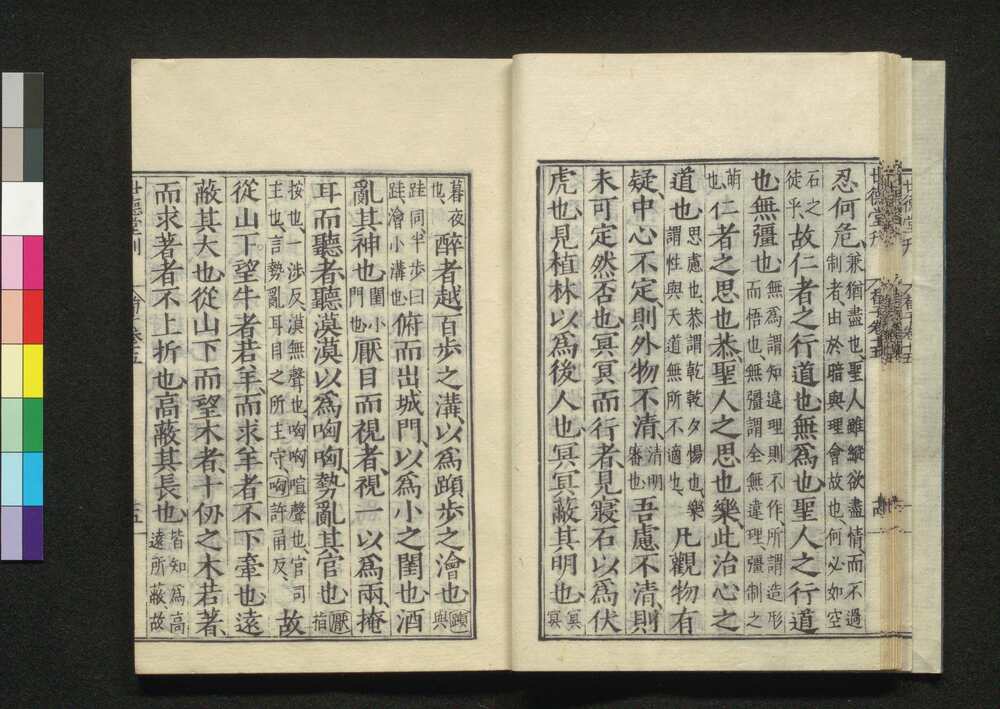 世德堂刊
忍何危、兼猶盡也、聖人雖縱欲盡情、而不過制者、由於暗與理會故也、何必如空
石之徒乎、故仁者之行道也、無爲也、聖人之行道
也、無彊也、無爲謂知違理則不作、所謂造形而悟也、無彊謂全無違理、彊制之
萌也、仁者之思也恭、聖人之思也樂、此治心之
道也、思慮也、恭謂乾乾夕惕也、樂謂性與天道無所不適也、凡觀物有
疑、中心不定、則外物不清、清明審也、吾慮不清、則
未可定然否也、冥冥而行者、見寢石以爲伏
虎也、見植林以爲後人也、冥冥蔽其明也、冥冥
暮夜也、醉者越百歩之溝、以爲蹞歩之澮也、蹞與
跬同、半歩曰跬、澮小溝也、俯而出城門、以爲小之閨也、酒
亂其神也、閨小門也、厭目而視者、視一以爲兩、掩
耳而聽者、聽漠漠以爲哅哅、勢亂其官也、厭指
按也、一渉反、漠無聲也、哅哅喧聲也、官司主也、言勢亂耳目之所主守、哅許用反、故
從山上望牛者若羊、而求羊者不下牽也、遠
蔽其大也、從山下而望木者、十仞之木若著、
而求著者不上折也、高蔽其長也、皆知爲高遠所蔽故